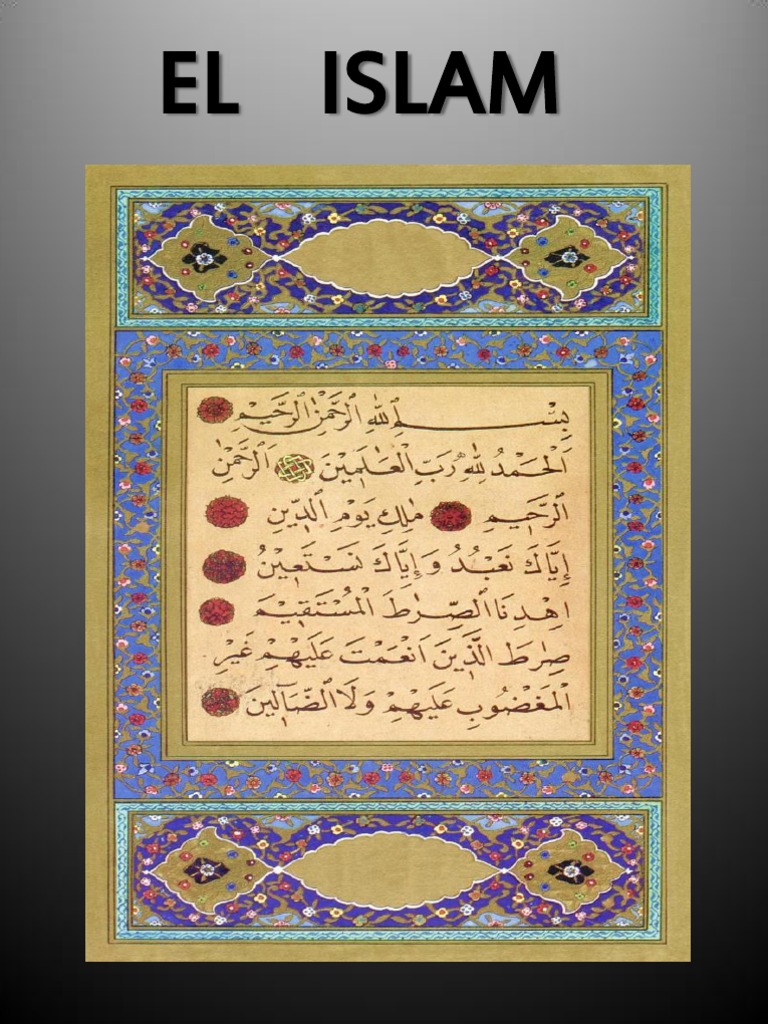 EL ISLAM
بِسْمِ اللهِ الرَّحْمٰنِ الرَّحِيمِ
اَلْحَمْدُ لِلّٰهِ رَبِّ الْعَالَمِينَ اَلرَّحْمٰنِ
الرَّحِيمِ مٰلِكِ يَوْمِ الدِّينِ
إِيَّاكَ نَعْبُدُ وَإِيَّاكَ نَسْتَعِينُ
اِهْدِنَا الصِّرٰطَ الْمُسْتَقِيمَ
صِرٰطَ الَّذِينَ اَنْعَمْتَ عَلَيْهِمْ غَيْرِ
الْمَغْضُوبِ عَلَيْهِمْ وَلَا الضَّآلِّينَ